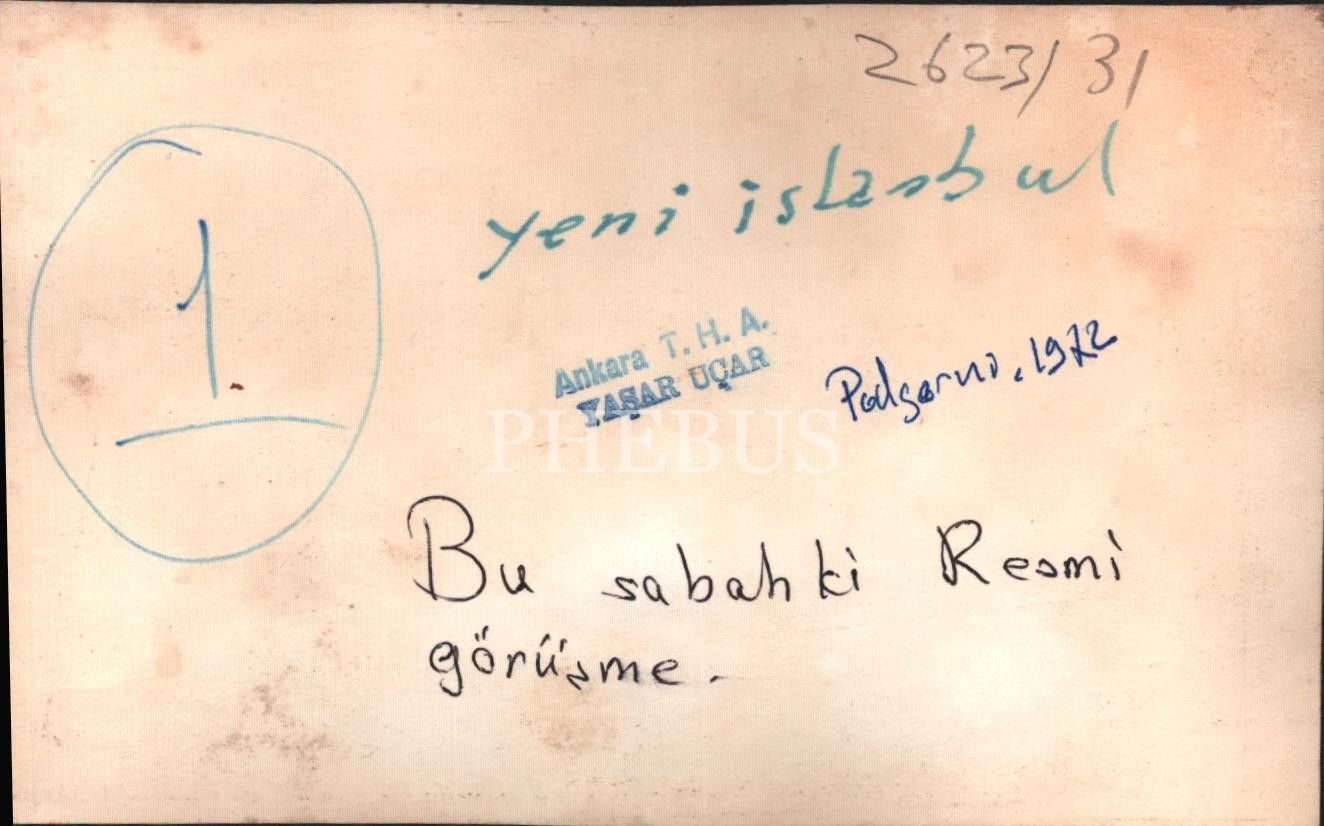 2623/31
yeni istanbul
1
Ankara T. H. A.
YAŞAR UÇAR
Podgorni. 1972
PHEBUS
Bu sabahki Resmi
görüşme.